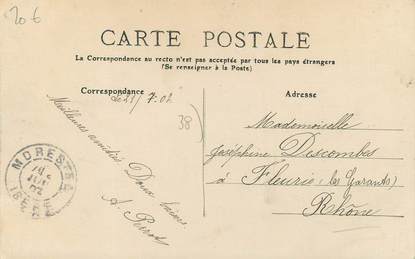 20 €
CARTE POSTALE
La Correspondance au recto n'est pas acceptée par tous les pays étrangers
(Se renseigner à la Poste)
Correspondance
Adresse
Meilleures amitiés
Doux baisers
A.
38
Mademoiselle
Joséphine Descombes
à Fleurie (les Garants)
Rhône
MOREST